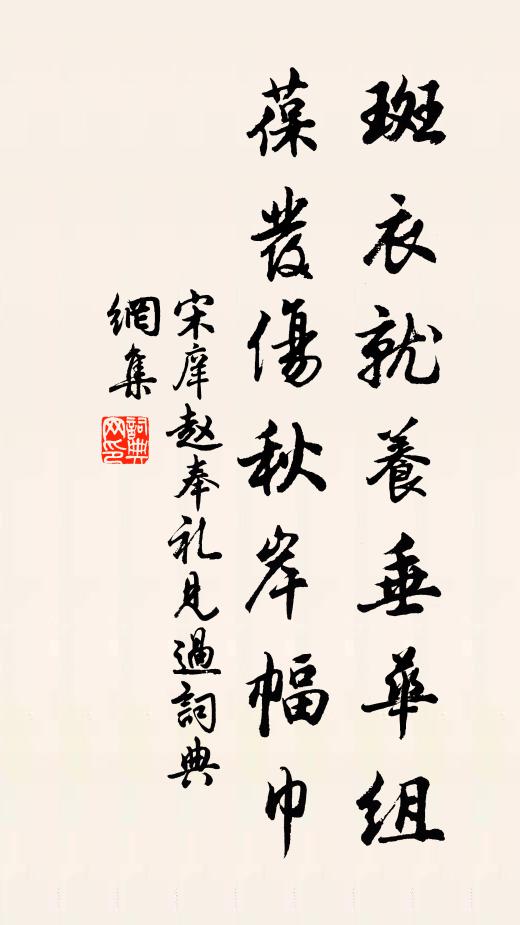 斑衣就養垂華組
葆髮傷秋岸幅巾
宋庠趙奉礼見過詞典
網集
詞典網印